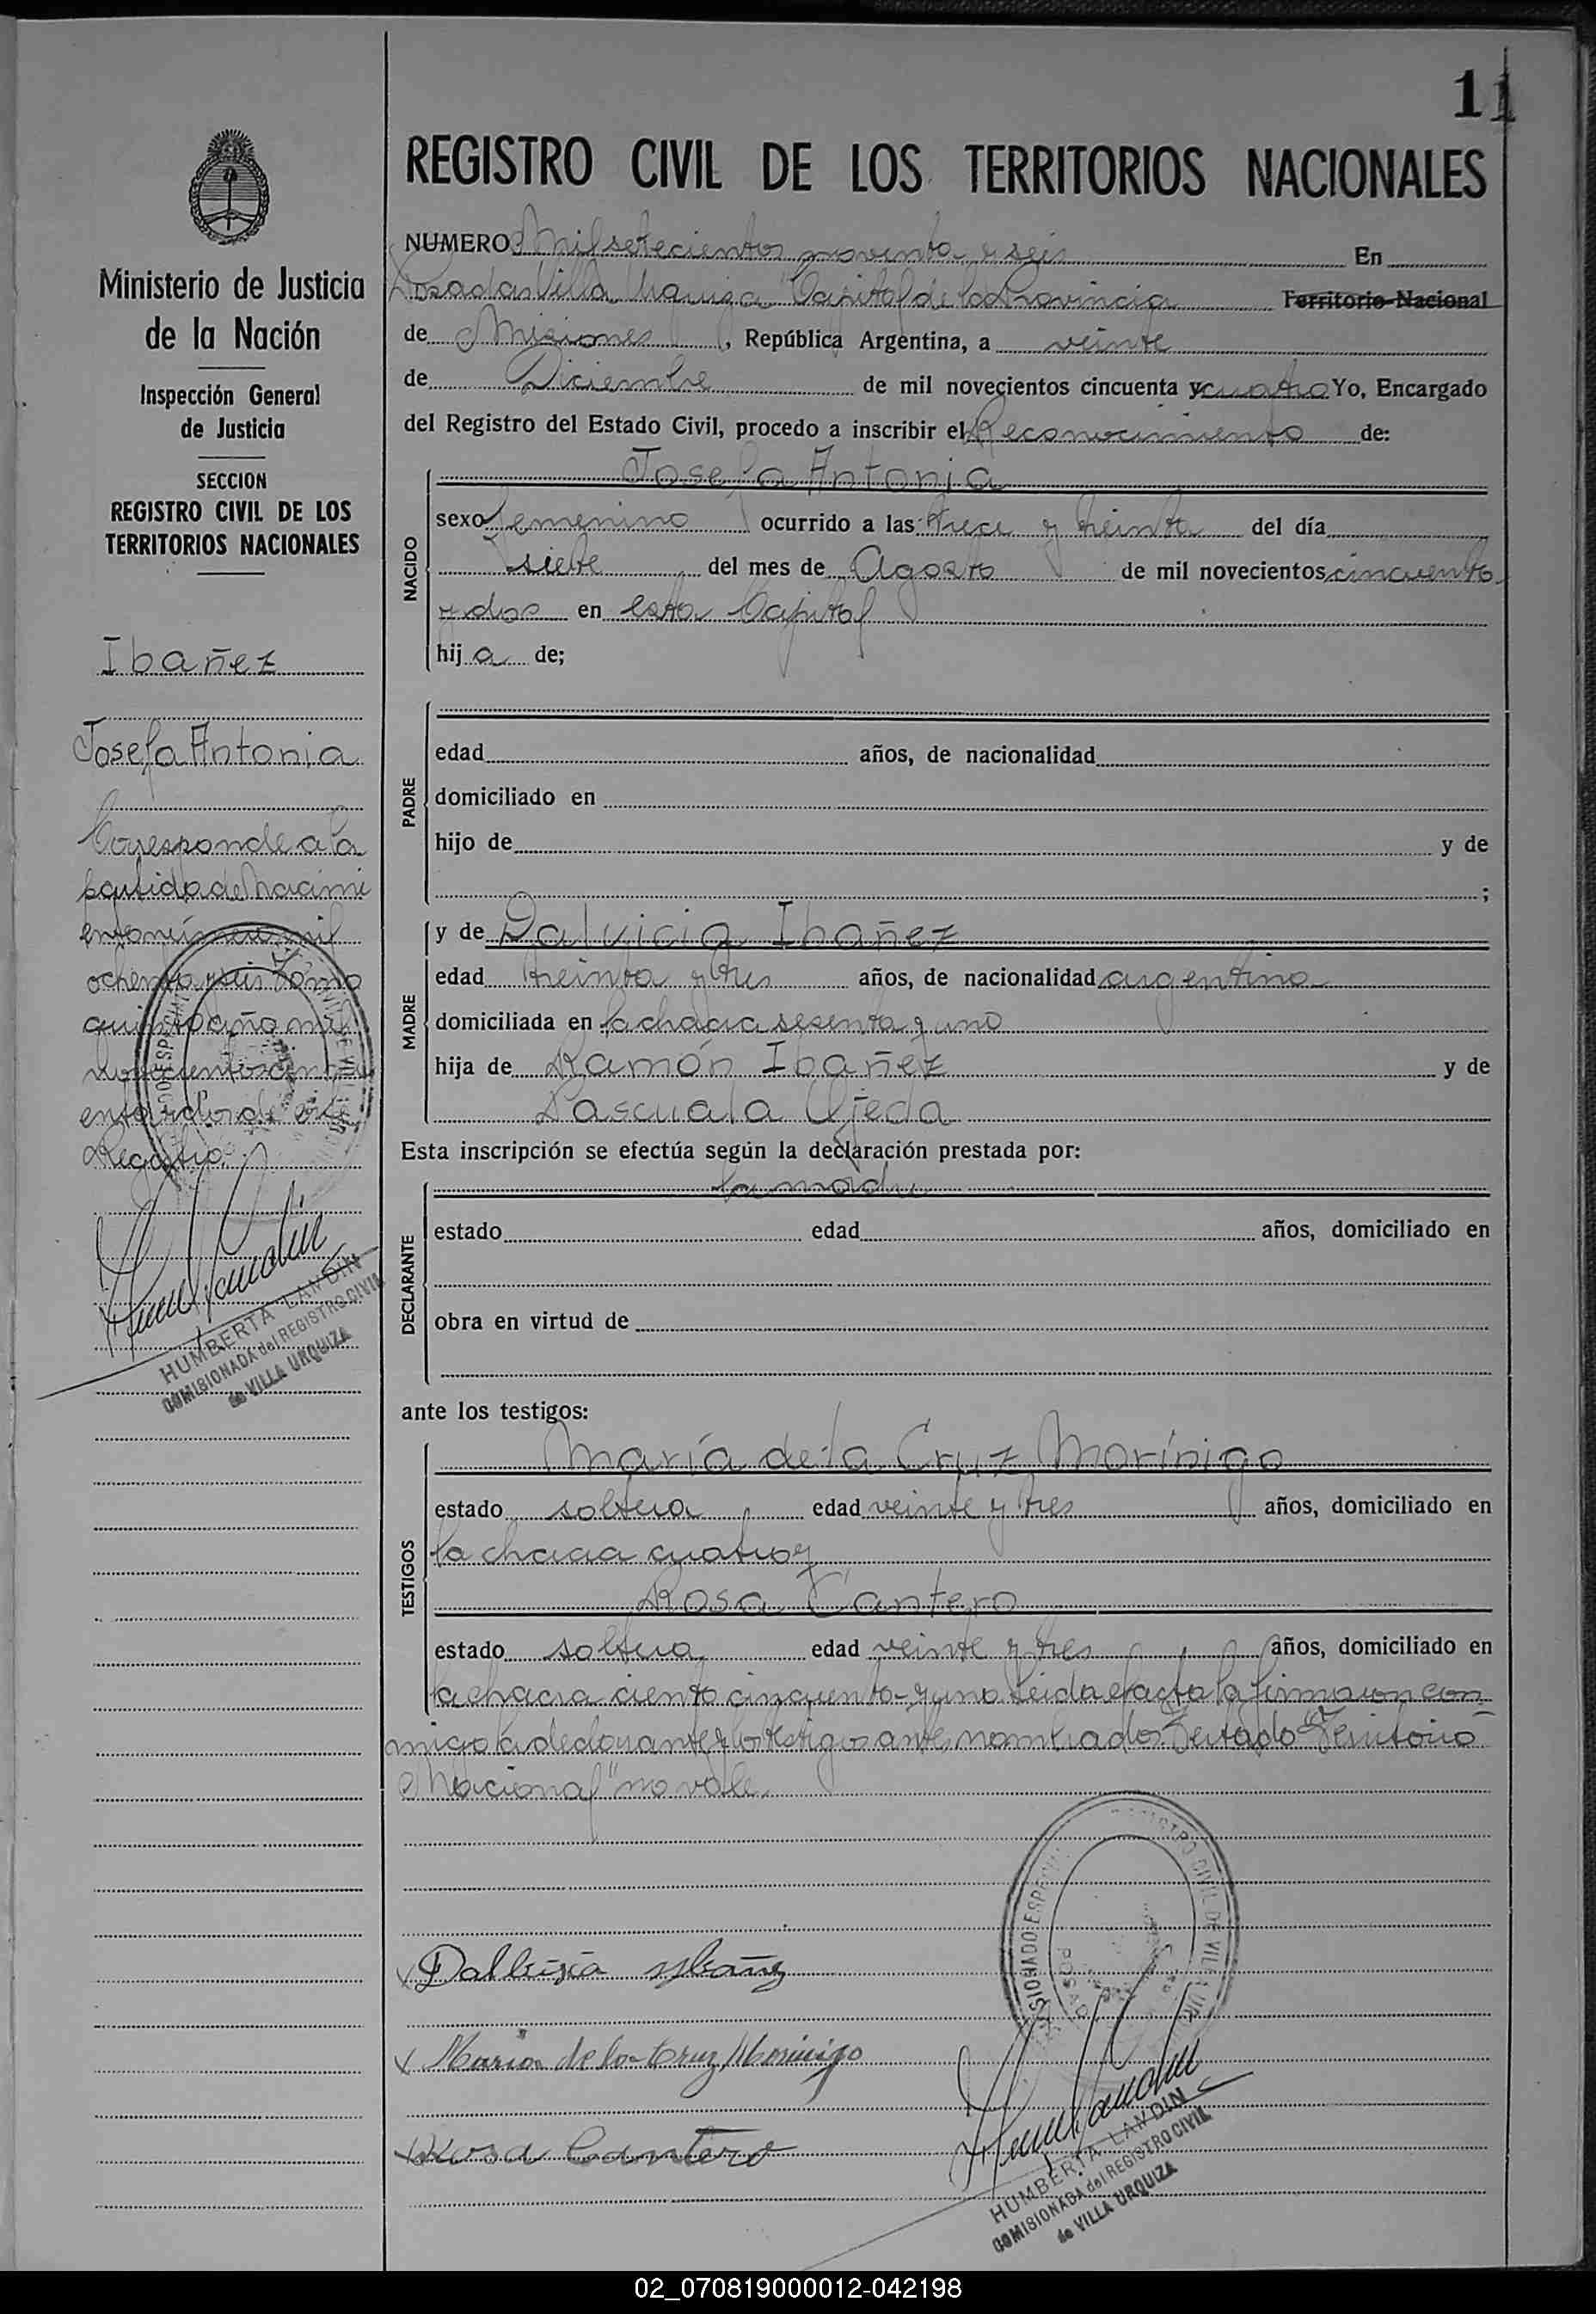 11
REGISTRO CIVIL DE LOS TERRITORIOS NACIONALES
Ministerio de Justicia
de la Nación
Inspección General
de Justicia
SECCION
REGISTRO CIVIL DE LOS
TERRITORIOS NACIONALES
Ibañez
Josefa Antonia
Corresponde a la
partida de Nacimi
ento número mil
ochenta y seis Tomo
quinto año mil
novecientos cincu
enta y dos de este
Registro.
HUMBERTA LANDIN
COMISIONADA del REGISTRO CIVIL
de VILLA URQUIZA
NUMERO Mil setecientos noventa y seis En
Posadas Villa Urquiza Capital de la Provincia Territorio Nacional
de Misiones, República Argentina, a veinte
de Diciembre de mil novecientos cincuenta y cuatro Yo, Encargado
del Registro del Estado Civil, procedo a inscribir el Reconocimiento de:
NACIDO
Josefa Antonia
sexo femenino ocurrido a las trece y treinta del día
siete del mes de Agosto de mil novecientos cincuenta
y dos en esta Capital
hija de;
PADRE
edad años, de nacionalidad
domiciliado en
hijo de y de
;
MADRE
y de Dalvicia Ibañez
edad treinta y tres años, de nacionalidad argentina
domiciliada en la chacra sesenta y uno
hija de Ramón Ibañez y de
Pascuala Ojeda
Esta inscripción se efectúa según la declaración prestada por:
DECLARANTE
la madre
estado edad años, domiciliado en
obra en virtud de
ante los testigos:
TESTIGOS
María de la Cruz Morínigo
estado soltera edad veinte y tres años, domiciliado en
la chacra cuatro y
Rosa Cantero
estado soltera edad veinte y tres años, domiciliado en
la chacra ciento cincuenta y uno. Leida el acta la firmaron con
migo la declarante y los testigos antes nombrados. Testado "Territorio
Nacional" no vale.
x Dalbisia Ybañez
x Maria de la Cruz Morinigo
x Rosa Cantero
HUMBERTA LANDIN
COMISIONADA del REGISTRO CIVIL
de VILLA URQUIZA
02_070819000012-042198